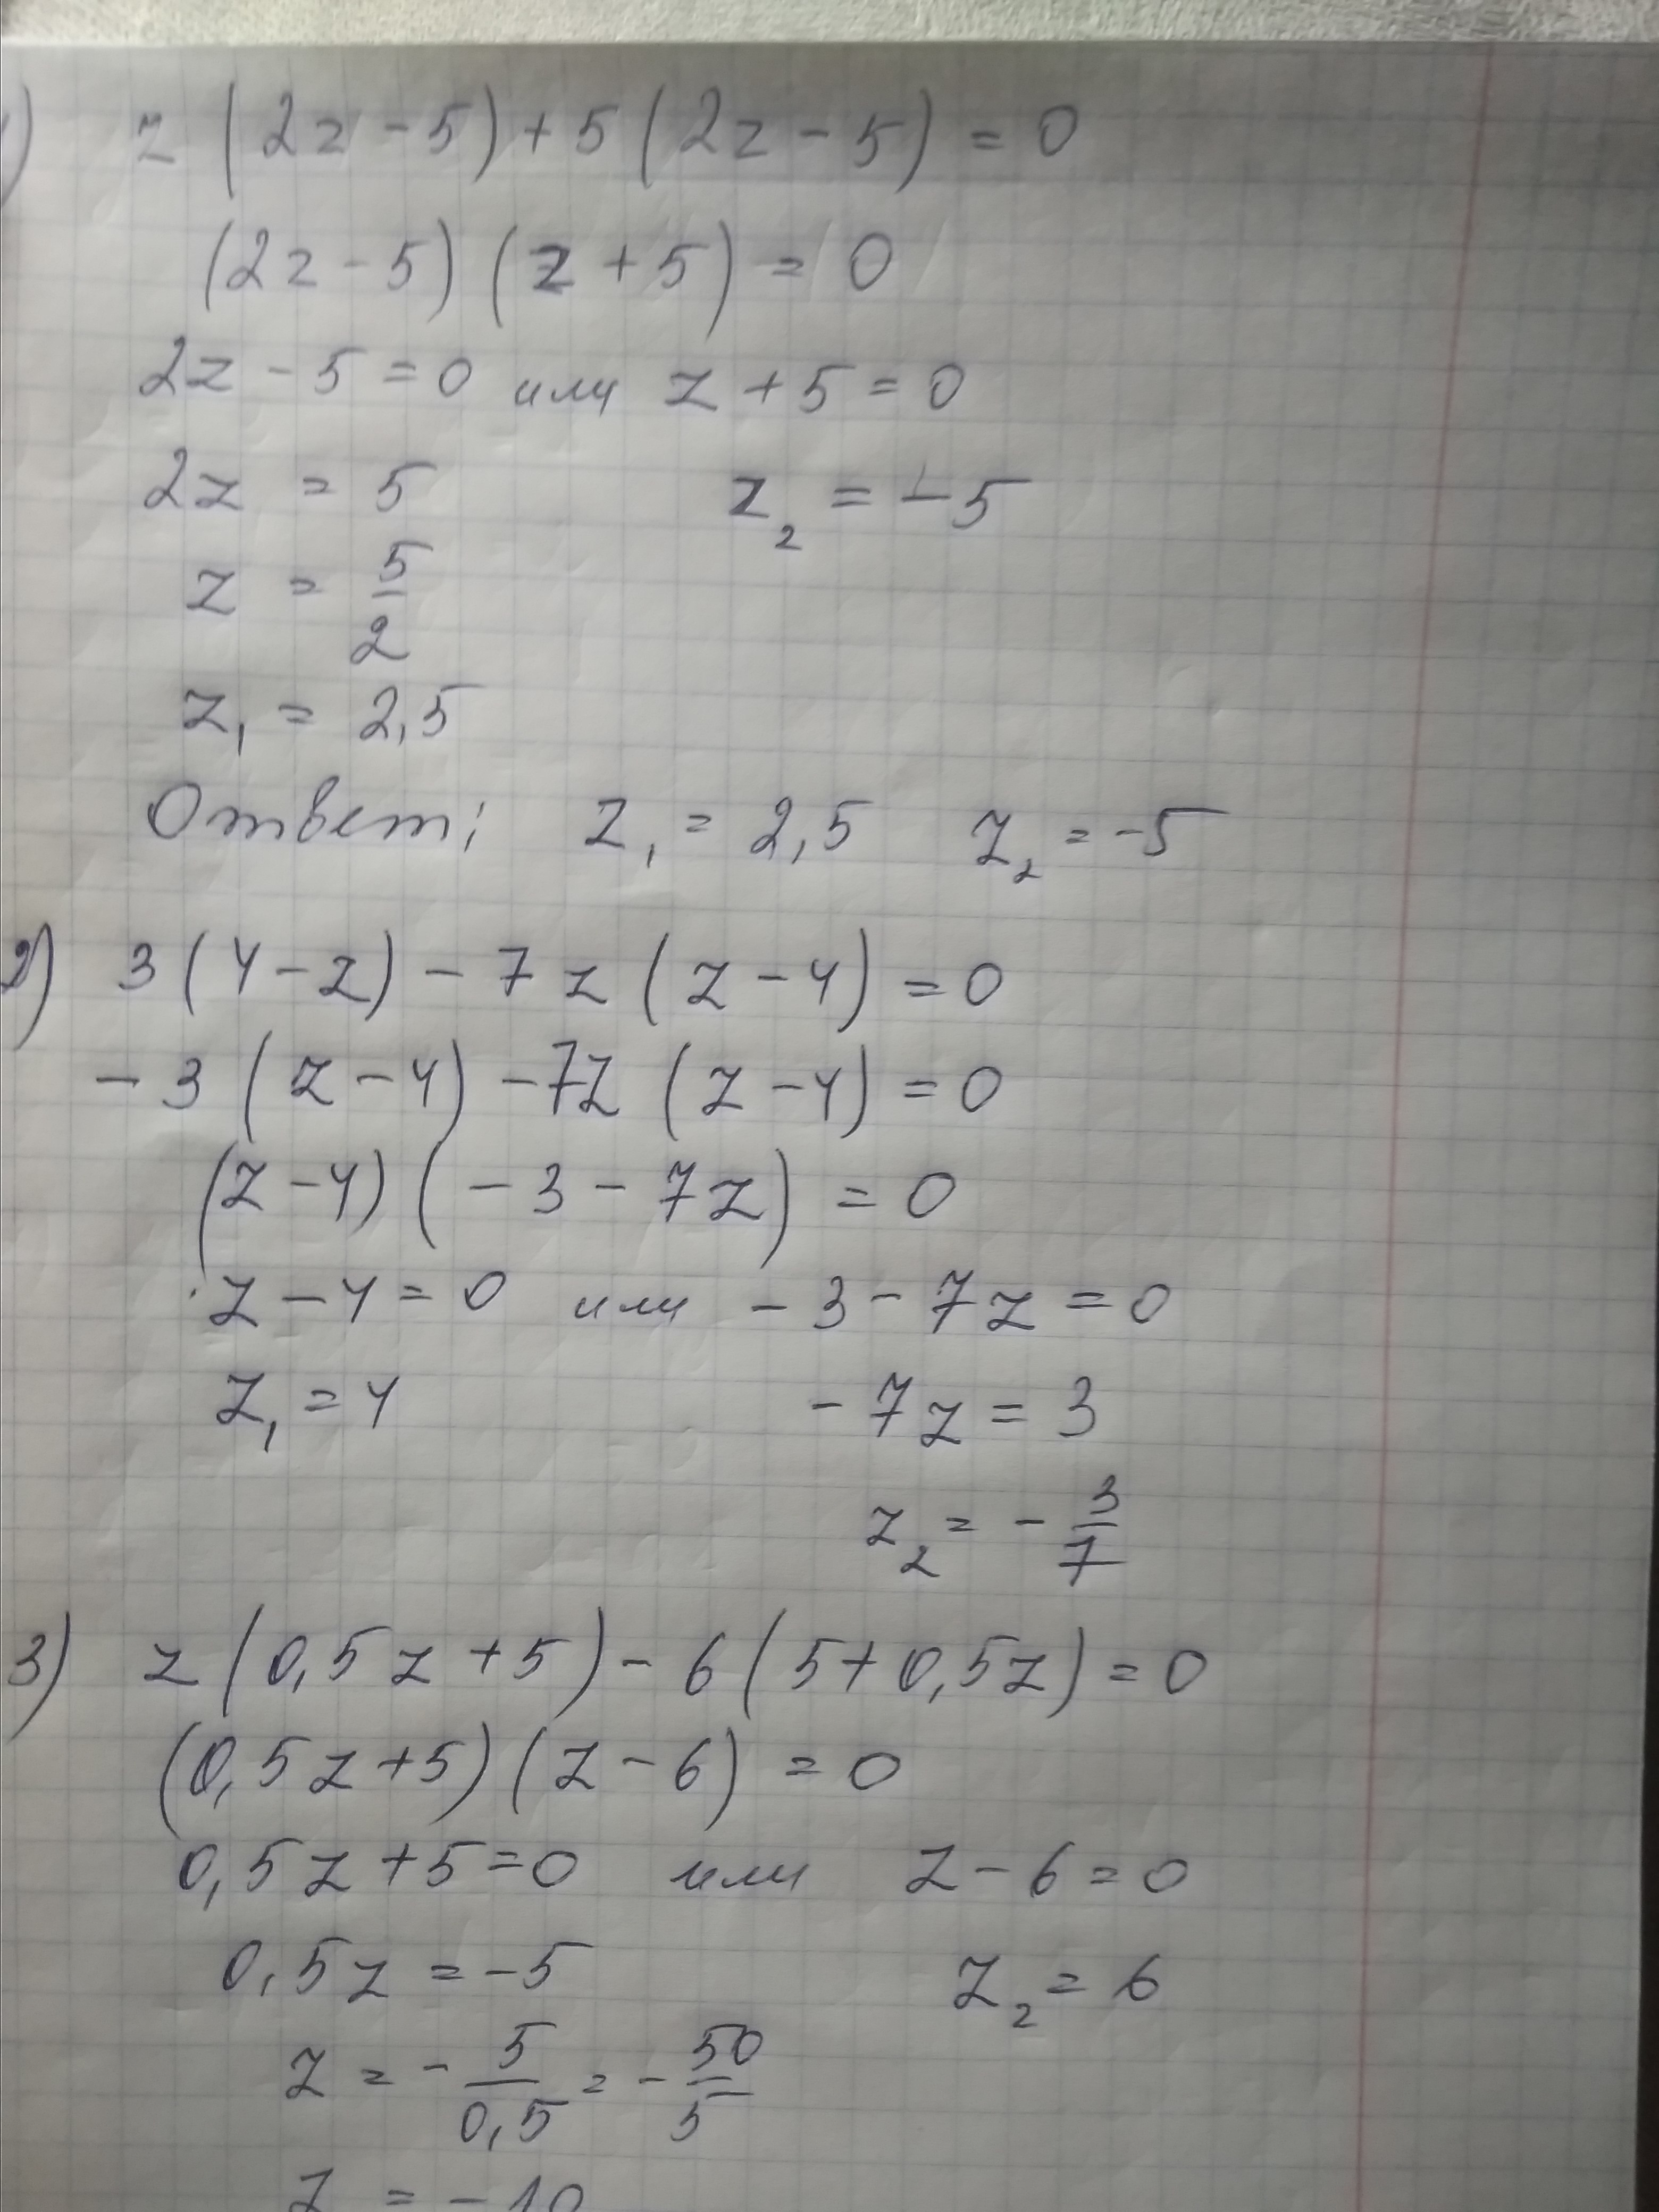 1) z (2z - 5) + 5 (2z - 5) = 0
(2z - 5) (z + 5) = 0
2z - 5 = 0 или z + 5 = 0
2z = 5 z₂ = -5
z = 5/2
z₁ = 2,5
Ответ: z₁ = 2,5 z₂ = -5
2) 3 (4 - z) - 7z (z - 4) = 0
- 3 (z - 4) - 7z (z - 4) = 0
(z - 4) (- 3 - 7z) = 0
z - 4 = 0 или - 3 - 7z = 0
z₁ = 4 - 7z = 3
z₂ = - 3/7
3) z (0,5z + 5) - 6 (5 + 0,5z) = 0
(0,5z + 5) (z - 6) = 0
0,5z + 5 = 0 или z - 6 = 0
0,5z = -5 z₂ = 6
z = - 5/0,5 = - 50/5
z = - 10